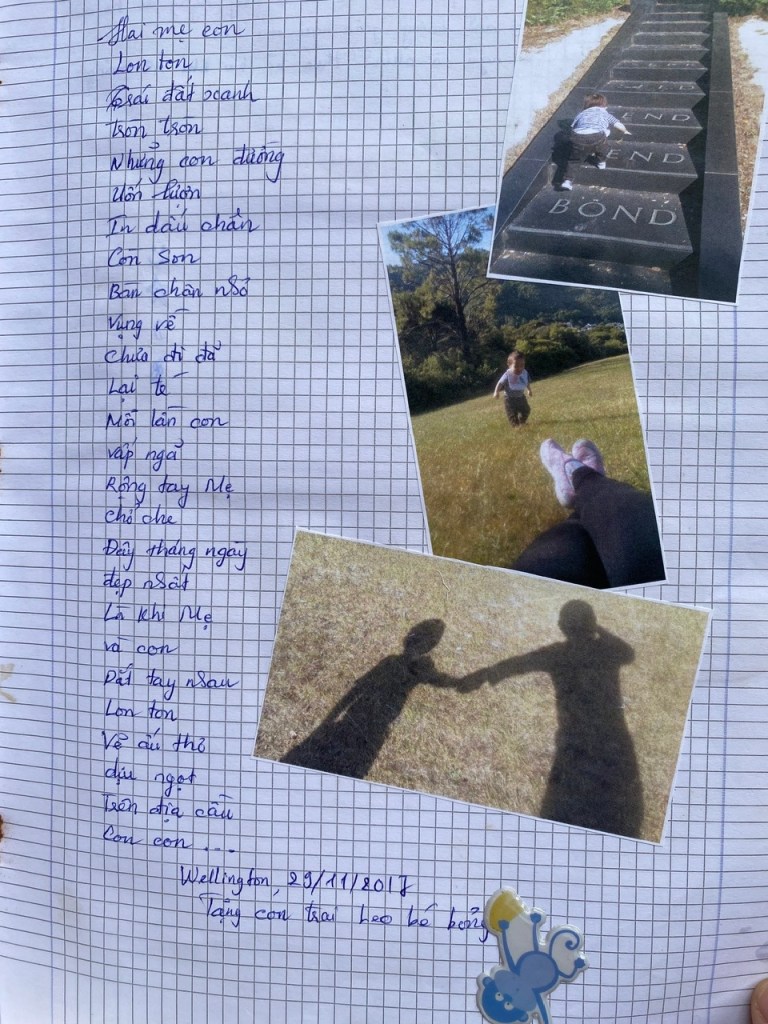 Hai mẹ con
Lon ton
Trái đất xanh
tròn tròn
Những con đường
Uốn lượn
In dấu chân
Con son
Bàn chân nhỏ
Vụng về
Chưa đi đã
Lại té
Mỗi lần con
vấp ngã
Rộng tay Mẹ
chở che
Đây tháng ngày
đẹp nhất
Là khi Mẹ
và con
Dắt tay nhau
Lon ton
Về ấu thơ
dịu ngọt
Trên địa cầu
Con con ...
Wellington, 29/11/2017
Tặng con trai heo bé bỏng
END
END
BOND